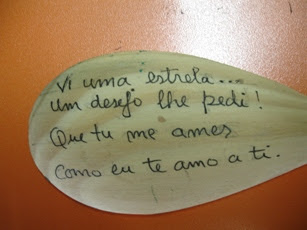 Vi uma estrela...
um desejo lhe pedi!
Que tu me ames
Como eu te amo a ti.